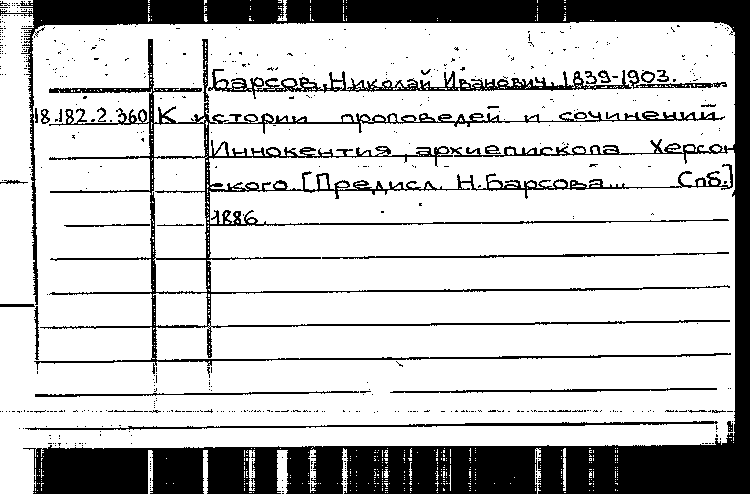 Барсов, Николай Иванович, 1839-1903.
18.182.2.360 К истории проповедей и сочинений
Иннокентия, архиепископа Херсон
ского. [Предисл. Н. Барсова... Спб.]
1886.